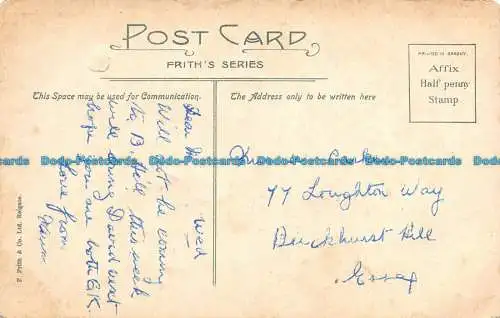 POST CARD
FRITH'S SERIES
This Space may be used for Communication.
The Address only to be written here
PRINTED IN SAXONY.
Affix
Half penny
Stamp.
Wed
Dear
Will not be coming
to B. Hill this week
will bring David next
hope you are both O.K.
Love from
77 Loughton Way
Buckhurst Hill
Essex
F. Frith & Co. Ltd. Reigate.
Postcards Postcards Postcards Postcards Postcards Postcards